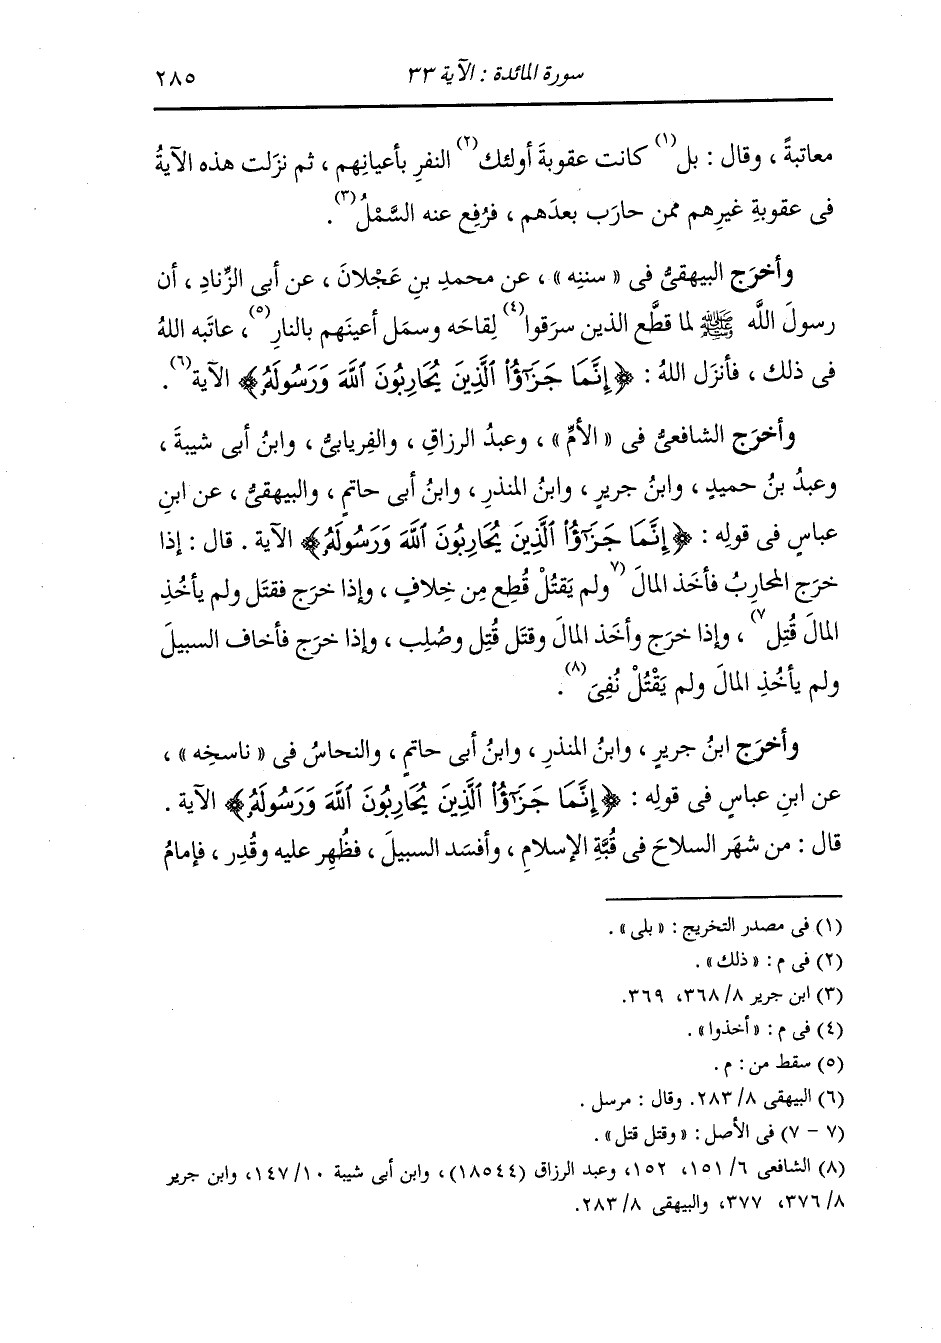 سورة المائدة : الآية ٣٣ ٢٨٥
معاتبةً ، وقال : بل(١) كانت عقوبةَ أولئك(٢) النفرِ بأعيانِهم ، ثم نزَلت هذه الآيةُ
فى عقوبةِ غيرِهم ممن حارَب بعدَهم ، فرُفِع عنه السَّمْلُ(٣) .
وأخرَج البيهقىُّ فى « سننِه » ، عن محمدِ بنِ عَجْلانَ ، عن أبى الزِّنادِ ، أن
رسولَ اللَّه ﷺ لما قطَّع الذين سرَقوا(٤) لِقاحَه وسمَل أعينَهم بالنارِ(٥) ، عاتَبه اللهُ
فى ذلك ، فأنزَل اللهُ : ﴿ إِنَّمَا جَزَٰٓؤُا۟ ٱلَّذِينَ يُحَارِبُونَ ٱللَّهَ وَرَسُولَهُۥ ﴾ الآية(٦) .
وأخرَج الشافعىُّ فى « الأمِّ » ، وعبدُ الرزاقِ ، والفِريابىُّ ، وابنُ أبى شيبةَ ،
وعبدُ بنُ حميدٍ ، وابنُ جريرٍ ، وابنُ المنذرِ ، وابنُ أبى حاتمٍ ، والبيهقىُّ ، عن ابنِ
عباسٍ فى قولِه : ﴿ إِنَّمَا جَزَٰٓؤُا۟ ٱلَّذِينَ يُحَارِبُونَ ٱللَّهَ وَرَسُولَهُۥ ﴾ الآية . قال : إذا
خرَج المحاربُ فأخَذ المالَ (٧ولم يَقتُلْ قُطِع مِن خِلافٍ ، وإذا خرَج فقتَل ولم يأخُذِ
المالَ قُتِل٧) ، وإذا خرَج وأخَذ المالَ وقتَل قُتِل وصُلِب ، وإذا خرَج فأخاف السبيلَ
ولم يأخُذِ المالَ ولم يَقْتُلْ نُفِىَ(٨) .
وأخرَج ابنُ جريرٍ ، وابنُ المنذرِ ، وابنُ أبى حاتمٍ ، والنحاسُ فى « ناسخِه » ،
عن ابنِ عباسٍ فى قولِه : ﴿ إِنَّمَا جَزَٰٓؤُا۟ ٱلَّذِينَ يُحَارِبُونَ ٱللَّهَ وَرَسُولَهُۥ ﴾ الآية .
قال : من شهَر السلاحَ فى قُبَّةِ الإسلامِ ، وأفسَد السبيلَ ، فظُهِر عليه وقُدِر ، فإمامُ
(١) فى مصدر التخريج : « بلى » .
(٢) فى م : « ذلك » .
(٣) ابن جرير ٨/ ٣٦٨، ٣٦٩.
(٤) فى م : « أخذوا » .
(٥) سقط من : م .
(٦) البيهقى ٨/ ٢٨٣. وقال : مرسل .
(٧ - ٧) فى الأصل : « وقتل قتل » .
(٨) الشافعى ٦/ ١٥١، ١٥٢، وعبد الرزاق (١٨٥٤٤) ، وابن أبى شيبة ١٠/ ١٤٧، وابن جرير
٨/ ٣٧٦، ٣٧٧، والبيهقى ٨/ ٢٨٣.